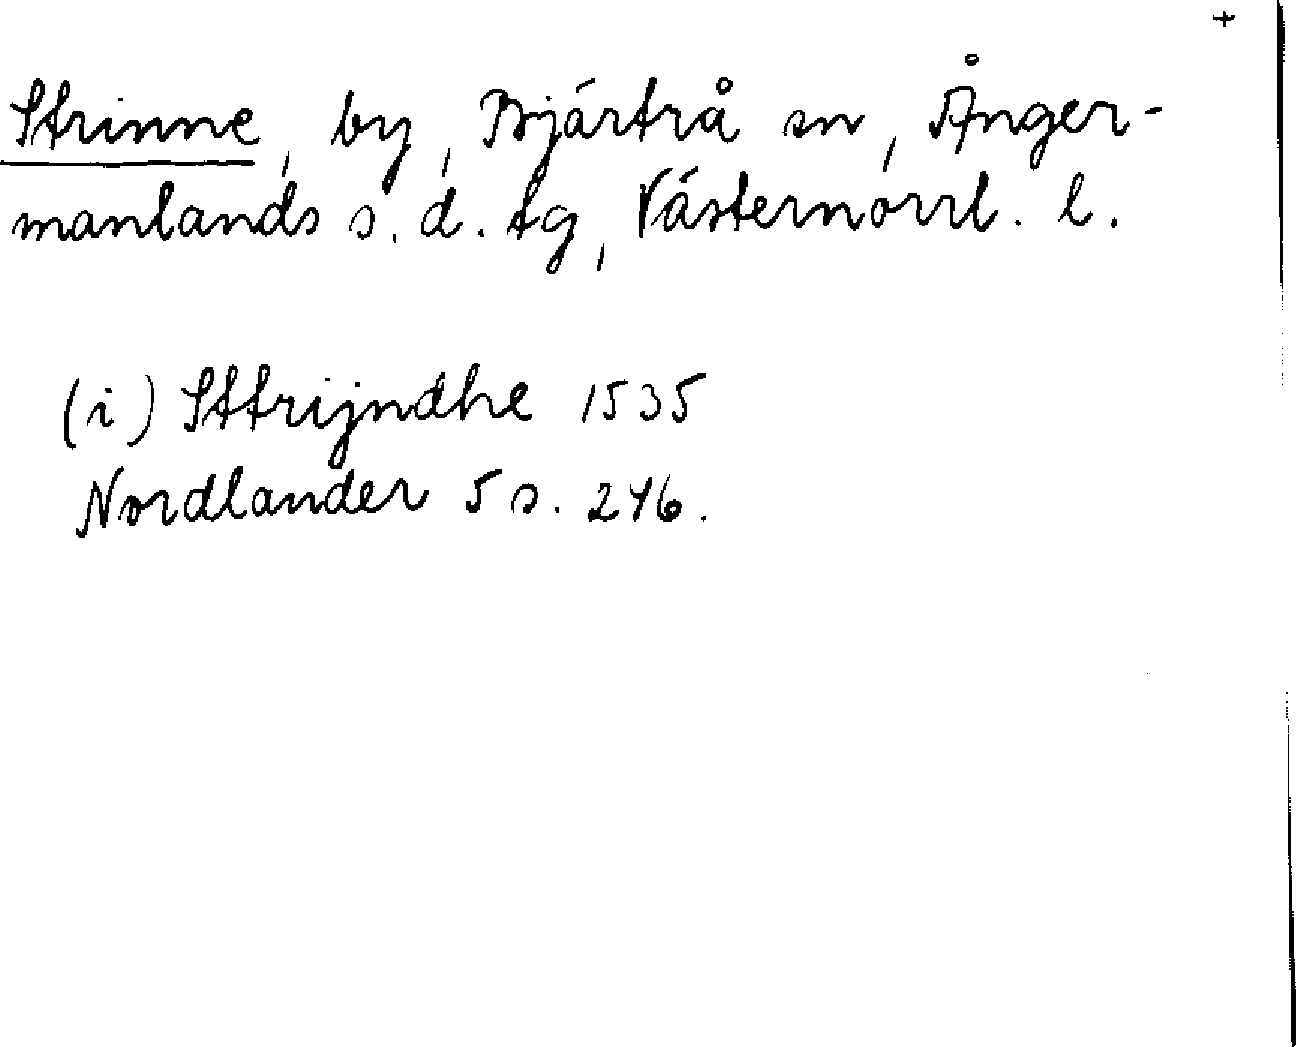 +
Strinne, by, Bjärtrå sn, Ånger-
manlands s. d. tg, Västernorrl. l.
(i) Sttrijndhe 1535
Nordlander 5 s. 246.